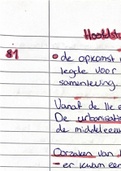 Hoofdst
§1 • de opkomst
legde voor
samenleving.
Vanaf de 11e
De urbanisatie
de middeleeu
Oorzaken van
- er kwam een